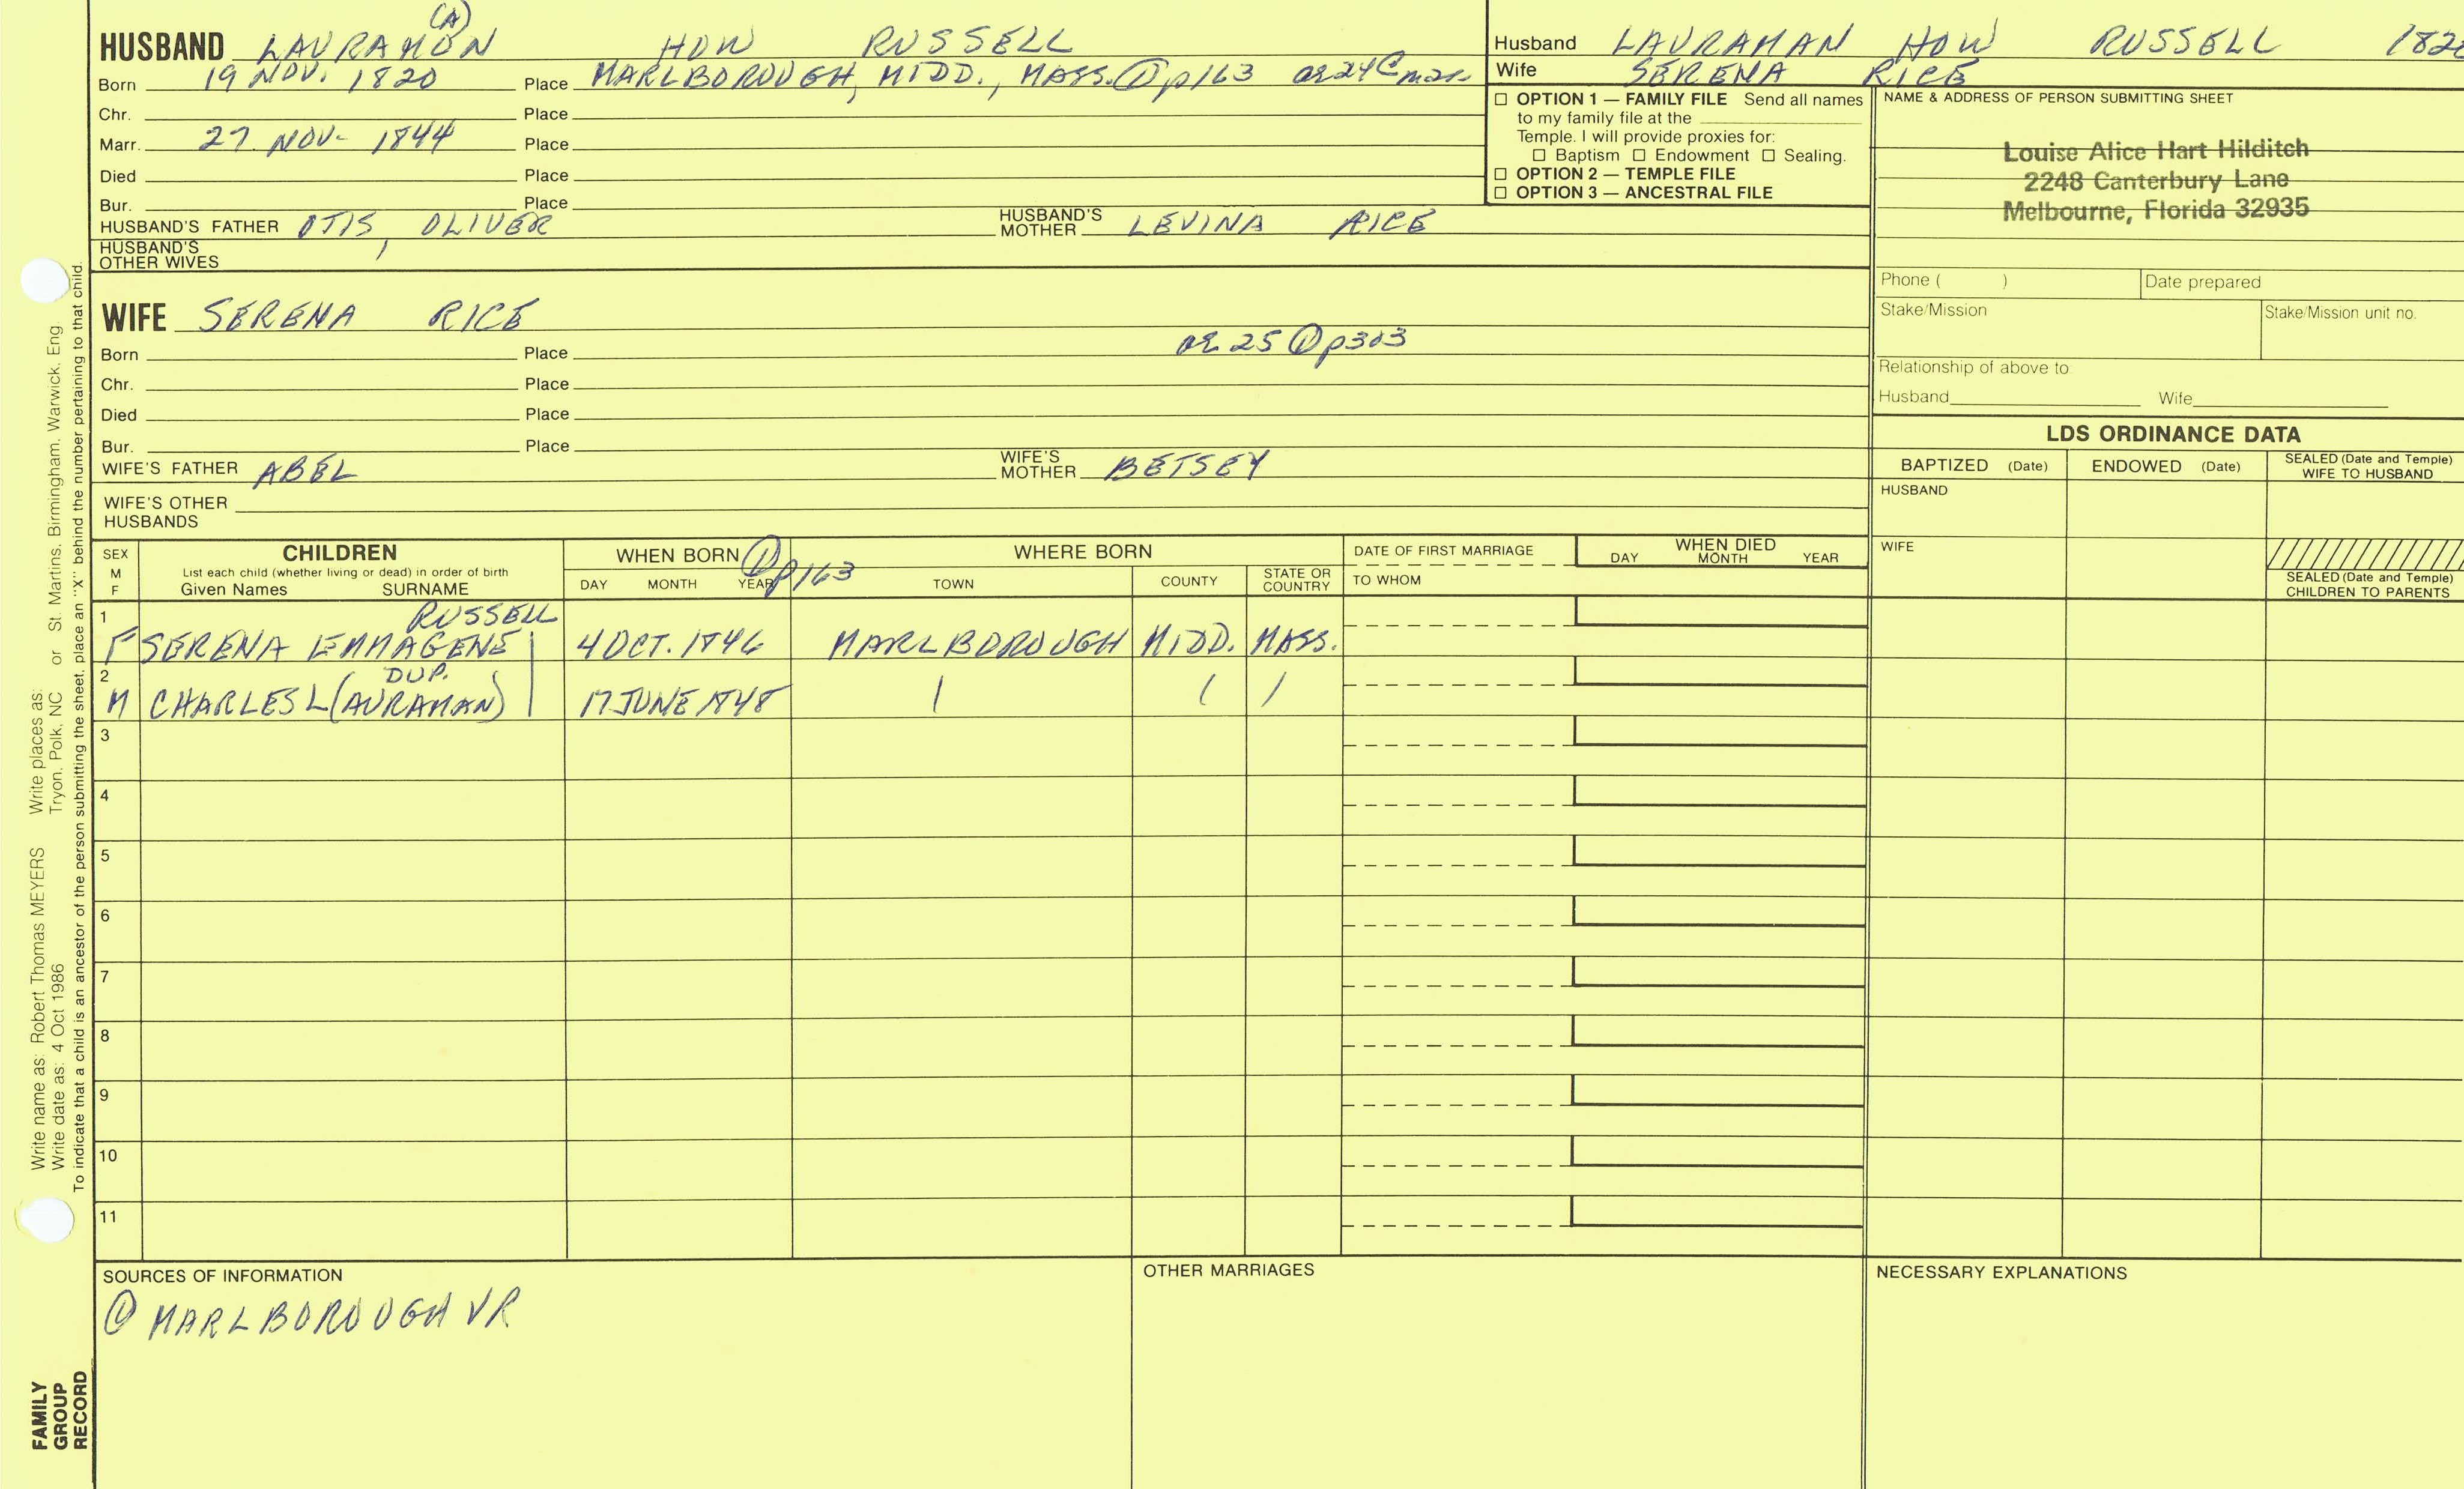 (A)
HUSBAND LAURAMON HOW RUSSELL
Born 19 NOV. 1820 Place MARLBOROUGH, MIDD., MASS. ① p163 ae 24 @ mar
Chr. Place
Marr. 27 NOV- 1844 Place
Died Place
Bur. Place
HUSBAND'S FATHER OTIS, OLIVER HUSBAND'S MOTHER LEVINA RICE
HUSBAND'S OTHER WIVES
WIFE SERENA RICE
ae 25 ① p303
Born Place
Chr. Place
Died Place
Bur. Place
WIFE'S FATHER ABEL WIFE'S MOTHER BETSEY
WIFE'S OTHER HUSBANDS
Husband LAURAMAN HOW RUSSELL
Wife SERENA RICE
☐ OPTION 1 — FAMILY FILE Send all names
to my family file at the
Temple. I will provide proxies for:
☐ Baptism ☐ Endowment ☐ Sealing.
☐ OPTION 2 — TEMPLE FILE
☐ OPTION 3 — ANCESTRAL FILE
NAME & ADDRESS OF PERSON SUBMITTING SHEET
Louise Alice Hart Hilditch
2248 Canterbury Lane
Melbourne, Florida 32935
Phone ( ) Date prepared
Stake/Mission Stake/Mission unit no.
Relationship of above to
Husband Wife
LDS ORDINANCE DATA
BAPTIZED (Date) ENDOWED (Date) SEALED (Date and Temple) WIFE TO HUSBAND
HUSBAND
WIFE
SEALED (Date and Temple) CHILDREN TO PARENTS
SEX M F
CHILDREN
List each child (whether living or dead) in order of birth
Given Names SURNAME
WHEN BORN ① p163
DAY MONTH YEAR
WHERE BORN
TOWN COUNTY STATE OR COUNTRY
DATE OF FIRST MARRIAGE
TO WHOM
WHEN DIED
DAY MONTH YEAR
1 RUSSELL
F SERENA EMMAGENE 4 OCT. 1846 MARLBOROUGH MIDD. MASS.
2 DUP.
M CHARLES L(AURAMAN) 17 JUNE 1848
3
4
5
6
7
8
9
10
11
SOURCES OF INFORMATION
① MARLBOROUGH VR
OTHER MARRIAGES
NECESSARY EXPLANATIONS
Write name as: Robert Thomas MEYERS Write places as:
Write date as: 4 Oct 1986 Tryon, Polk, NC or St. Martins, Birmingham, Warwick, Eng.
To indicate that a child is an ancestor of the person submitting the sheet, place an "X" behind the number pertaining to that child.
FAMILY
GROUP
RECORD